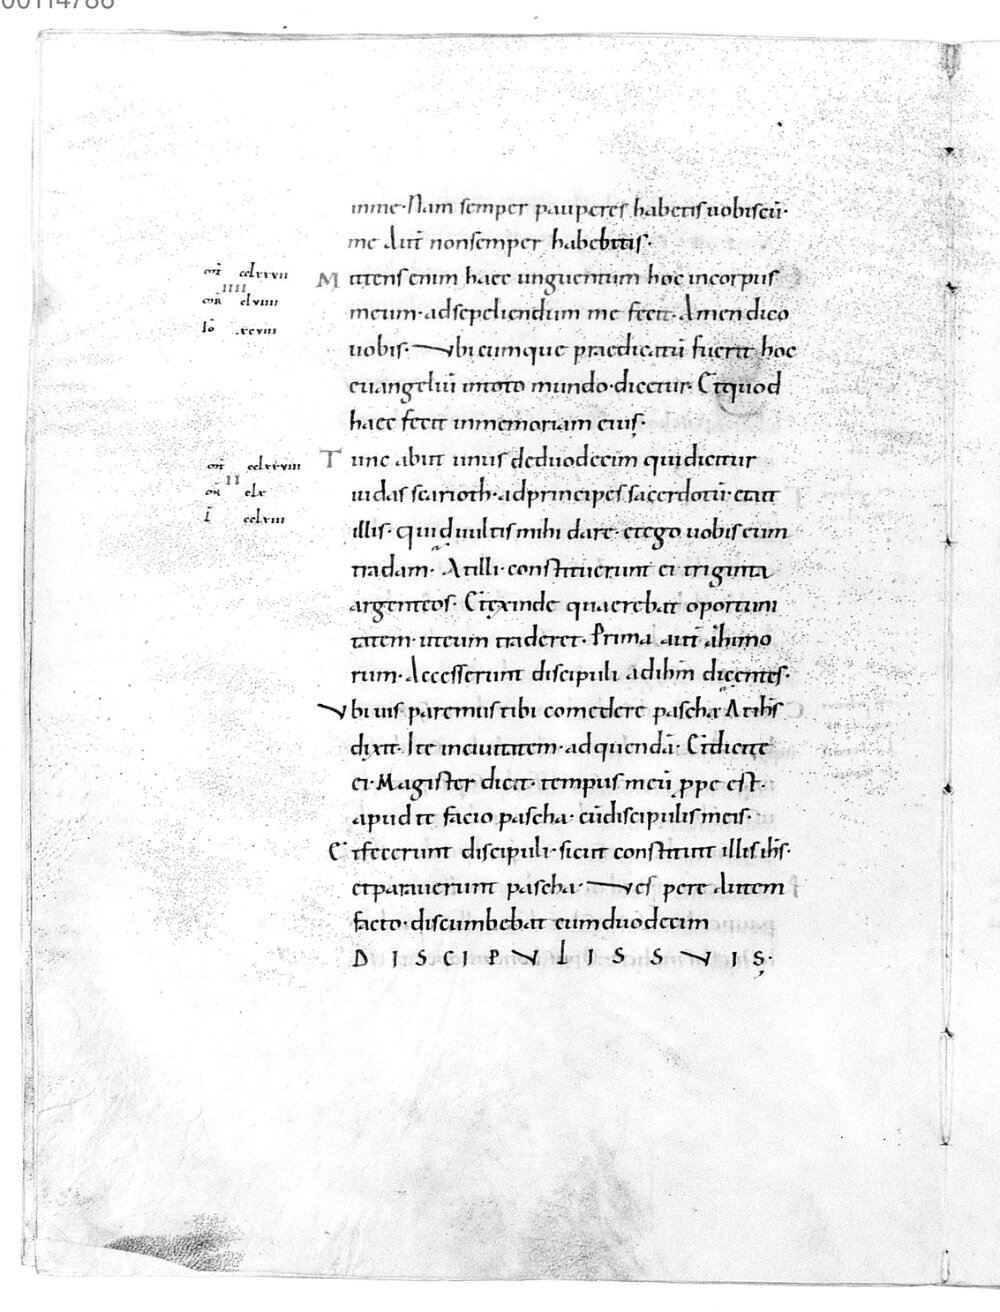 00114786
inme· Nam semper pauperes habetis uobiscū·
me aut̄ nonsemper habebitis·
Mittens enim haec unguentum hoc incorpus
meum· adsepeliendum me fecit· Amen dico
uobis· Vbicumque praedicatū fuerit hoc
euangeliū intoto mundo· dicetur· Etquod
haec fecit inmemoriam eius·
Tunc abiit unus deduodecim quidicitur
iudas scarioth· adprincipes sacerdotū· etait
illis· quiduultis mihi dare· etego uobis eum
tradam· Atilli· constituerunt ei triginta
argenteos· Etexinde quaerebat oportuni
tatem· uteum traderet· Prima aut̄ azimo
rum· Accesserunt discipuli adihm̄ dicentes·
Vbi uis paremus tibi comedere pascha· At ihs̄
dixit· Ite inciuitatem· adquendā· Et dicite
ei· Magister dicit· tempus meū ꝓpe est·
apud te facio pascha· cūdiscipulis meis·
Etfecerunt discipuli· sicut constituit illis ihs̄·
etparauerunt pascha· Vespere autem
facto· discumbebat cumduodecim
DISCIPVLIS SVIS·
mt̄ cclxxvii
IIII
mr̄ clviiii
Iō xcviii
mt̄ cclxxviii
II
mr̄ clx
L̄ cclxiii